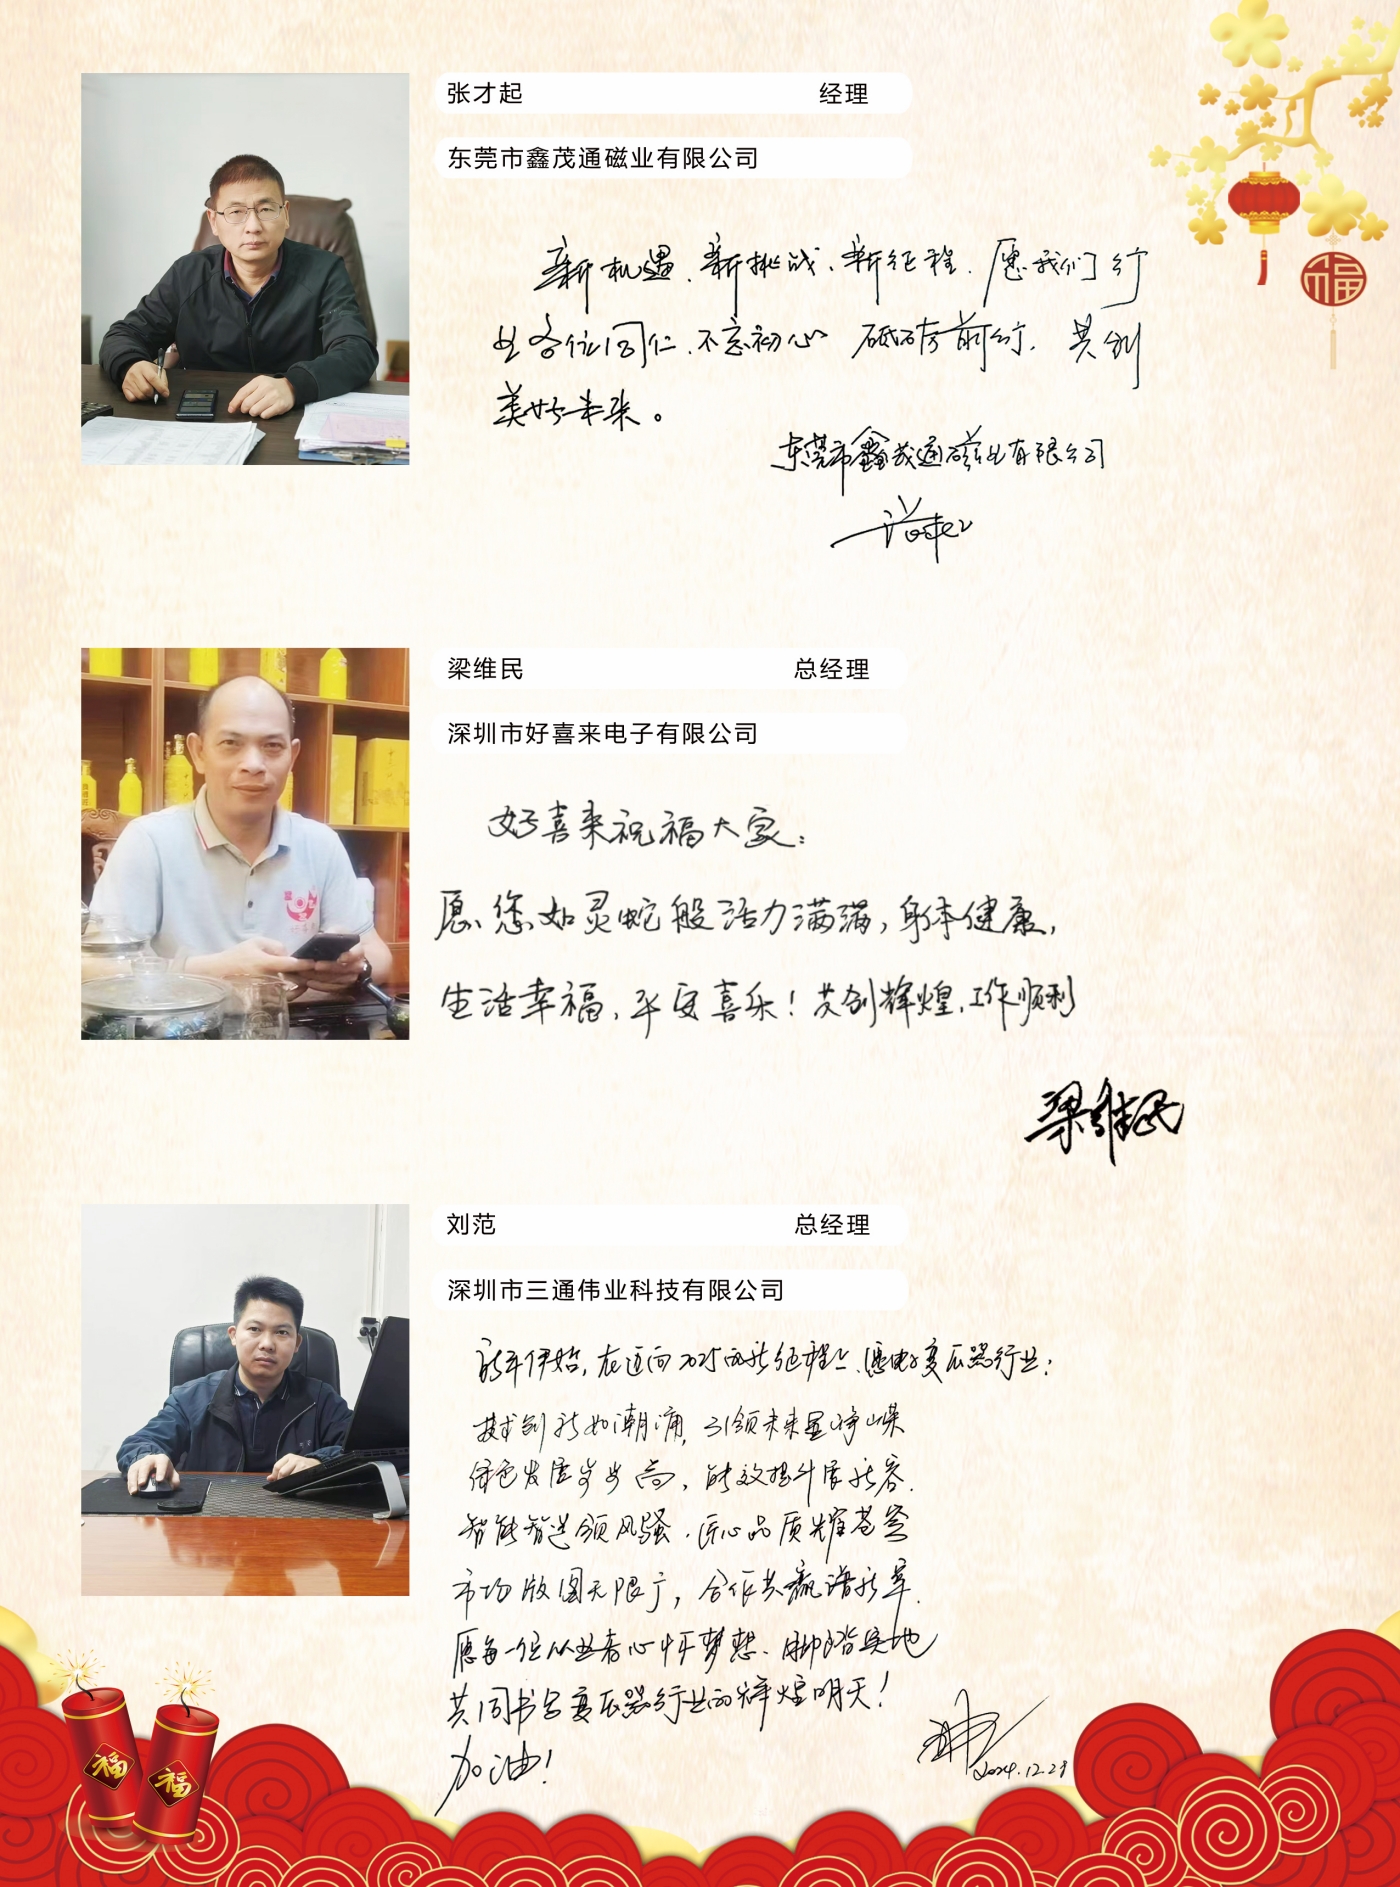 张才起 经理
东莞市鑫茂通磁业有限公司
新机遇、新挑战、新征程、愿我们行
业各位同仁、不忘初心 砥砺前行、共创
美好未来。
东莞市鑫茂通磁业有限公司
梁维民 总经理
深圳市好喜来电子有限公司
好喜来祝福大家:
愿您如灵蛇般活力满满,身体健康,
生活幸福,平安喜乐!共创辉煌,工作顺利
梁维民
刘范 总经理
深圳市三通伟业科技有限公司
新年伊始,在迈向2025的新征程上、愿电子变压器行业:
技术创新如潮涌,引领未来显峥嵘
绿色发展步步高,能效提升展新容.
智能智造领风骚.匠心品质耀苍穹
市场版图无限广,合作共赢谱新章.
愿每一位从业者心怀梦想、脚踏实地
共同书写变压器行业的辉煌明天!
加油!
2024.12.29
福
福
福